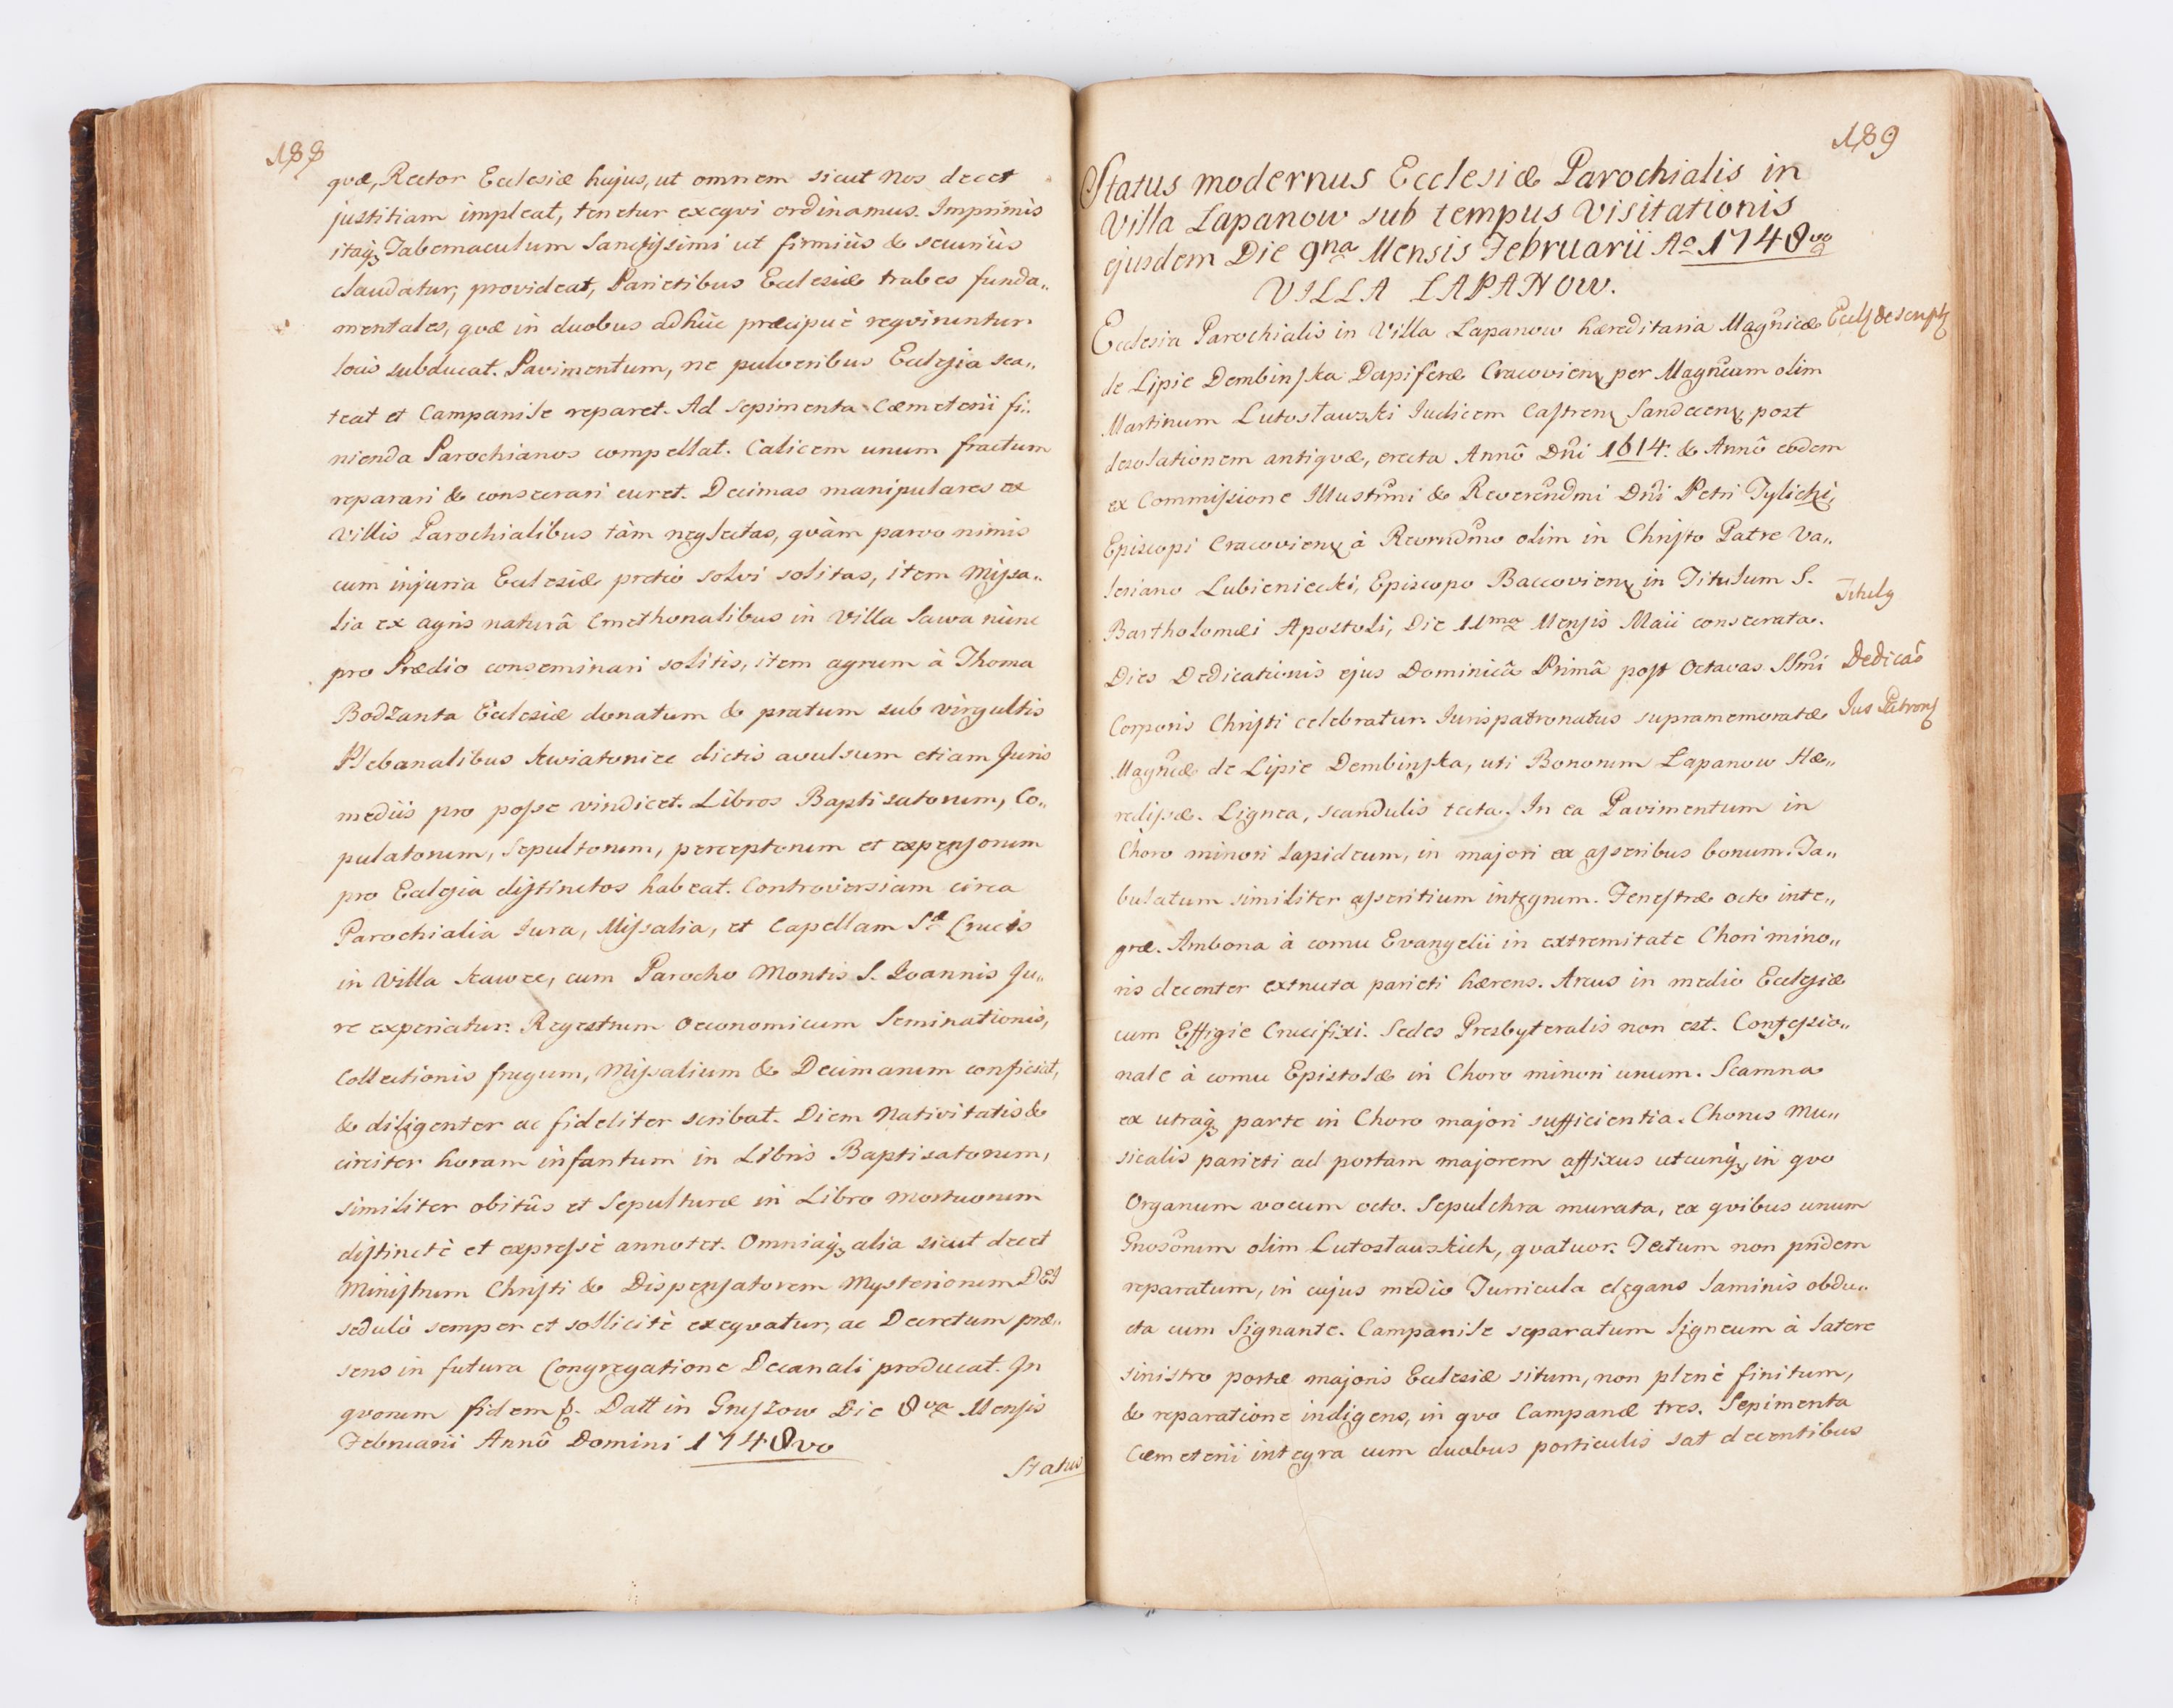 188
quæ, Rector Ecclesiæ hujus, ut omnem sicut Nos decet
justitiam impleat, tenetur exeqvi ordinamus. Imprimis
itaq; Tabernaculum Sanctissimi ut firmiùs & securiùs
claudatur, provideat, Parietibus Ecclesiæ trabes funda„
mentales, quæ in duobus adhuc præcipuè reqviruntur
locis subducat. Pavimentum, ne pulveribus Ecclesia sca„
teat et Campanile reparet. Ad sepimenta Cæmeterii fi„
nienda Parochianos compellat. Calicem unum fractum
reparari & consecrari curet. Decimas manipulares ex
Villis Parochialibus tàm neglectas, qvàm parvo nimis
cum injuria Ecclesiæ pretio solvi solitas, item Missa„
lia ex agris naturâ Cmethonalibus in Villa Sawa nunc
pro Prædio conseminari solitis, item agrum à Thoma
Bodzanta Ecclesiæ donatum & pratum sub virgultis
Plebanalibus Kwiatonice dictis avulsum etiam Juris
mediis pro posse vindicet. Libros Baptisatorum, Co„
pulatorum, Sepultorum, perceptorum et expensorum
pro Ecclesia distinctos habeat. Controversiam circa
Parochialia Jura, Missalia, et Capellam Sæ Crucis
in Villa Kawec, cum Parocho Montis S. Joannis Ju„
re experiatur. Regestrum Oeconomicum Seminationis,
Collectionis frugum, Missalium & Decimarum conficiat,
& diligenter ac fideliter scribat. Diem Nativitatis &
circiter horam infantum in Libris Baptisatorum,
similiter obitûs et Sepulturæ in Libro Mortuorum
distinctè et expressè annotet. Omniaq; alia sicut decet
Ministrum Christi & Dispensatorem Mysteriorum DEI
sedulò semper et sollicitè exeqvatur, ac Decretum præ„
sens in futura Congregatione Decanali producat. In
qvorum fidem &. Datt in Gruszow Die 8va Mensis
Februarii Annô Domini 1748vo
Status
189
Status modernus Ecclesiæ Parochialis in
Villa Lapanow sub tempus Visitationis
ejusdem Die 9na Mensis Februarii Ao 1748vo
VILLA LAPANOW.
Ecclesia Parochialis in Villa Lapanow hæreditaria Magnicæ
de Lipie Dembinska Dapiferæ Cracovien per Magncum olim
Martinum Lutosławski Judicem Castren Sandecen, post
desolationem antiquæ, erecta Annô Dni 1614. & Annô eodem
ex Commissione Illustrmi & Reverendmi Dni Petri Tylicki,
Episcopi Cracovien à Revrndmo olim in Christo Patre Va„
leriano Lubieniecki, Episcopo Baccovien in Titulum S.
Bartholomæi Apostoli, Die 11ma Mensis Maii consecrata.
Dies Dedicationis ejus Dominicâ Primâ post Octavas SSmi
Corporis Christi celebratur. Jurispatronatus supramemoratæ
Magncæ de Lipie Dembinska, uti Bonorum Lapanow Hæ„
redissæ. Lignea, scandulis tecta. In ea Pavimentum in
Choro minori lapideum, in majori ex asseribus bonum. Ta„
bulatum similiter asseritium integrum. Fenestræ octo inte„
græ. Ambona à cornu Evangelii in extremitate Chori mino„
ris decenter extructa parieti hærens. Arcus in medio Ecclesiæ
cum Effigie Crucifixi. Sedes Presbyteralis non est. Confessio„
nale à cornu Epistolæ in Choro minori unum. Scamna
ex utraq; parte in Choro majori sufficientia. Chorus Mu„
sicalis parieti ad portam majorem affixus utcunq;, in qvo
Organum vocum octo. Sepulchra murata, ex qvibus unum
Gnosorum olim Lutosławskich, qvatuor. Tectum non pridem
reparatum, in cujus medio Turricula elegans laminis obdu„
cta cum Signante. Campanile separatum ligneum à latere
sinistro portæ majoris Ecclesiæ situm, non plenè finitum,
& reparatione indigens, in qvo Campanæ tres. Sepimenta
Cæmeterii integra cum duobus porticulis sat decentibus
Eccl descrip
Titulg
Dedicaõ
Jus Patron